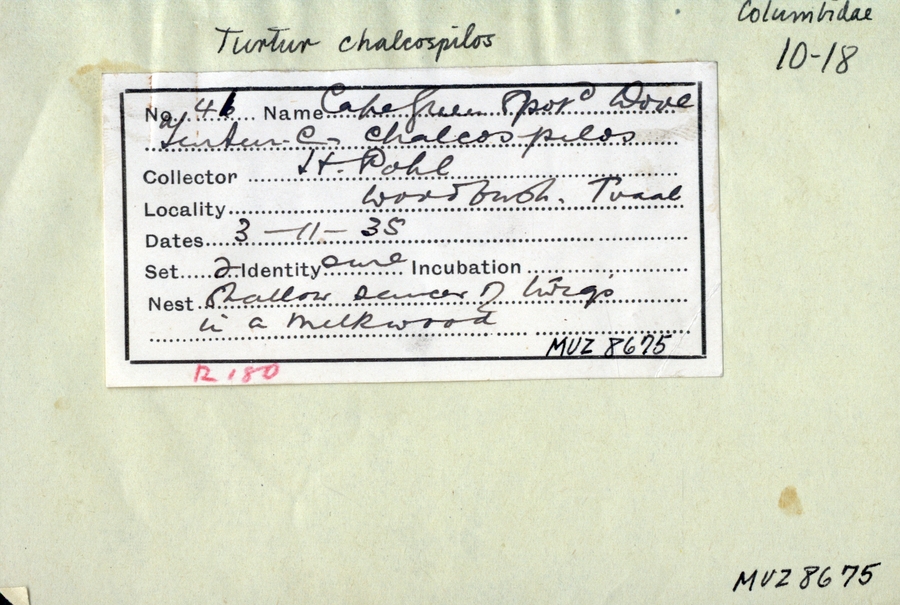 Columbidae
Turtur chalcospilos
10-18
No. 46 Name Cape Green Spotd Dove
Turtur c. chalcospilos
Collector H. Pohl
Locality Woodbush. Tvaal
Dates 3-11-35
Set 2 Identity sure Incubation
Nest Shallow saucer of twigs
in a milkwood
MVZ 8675
R 180
MVZ 8675